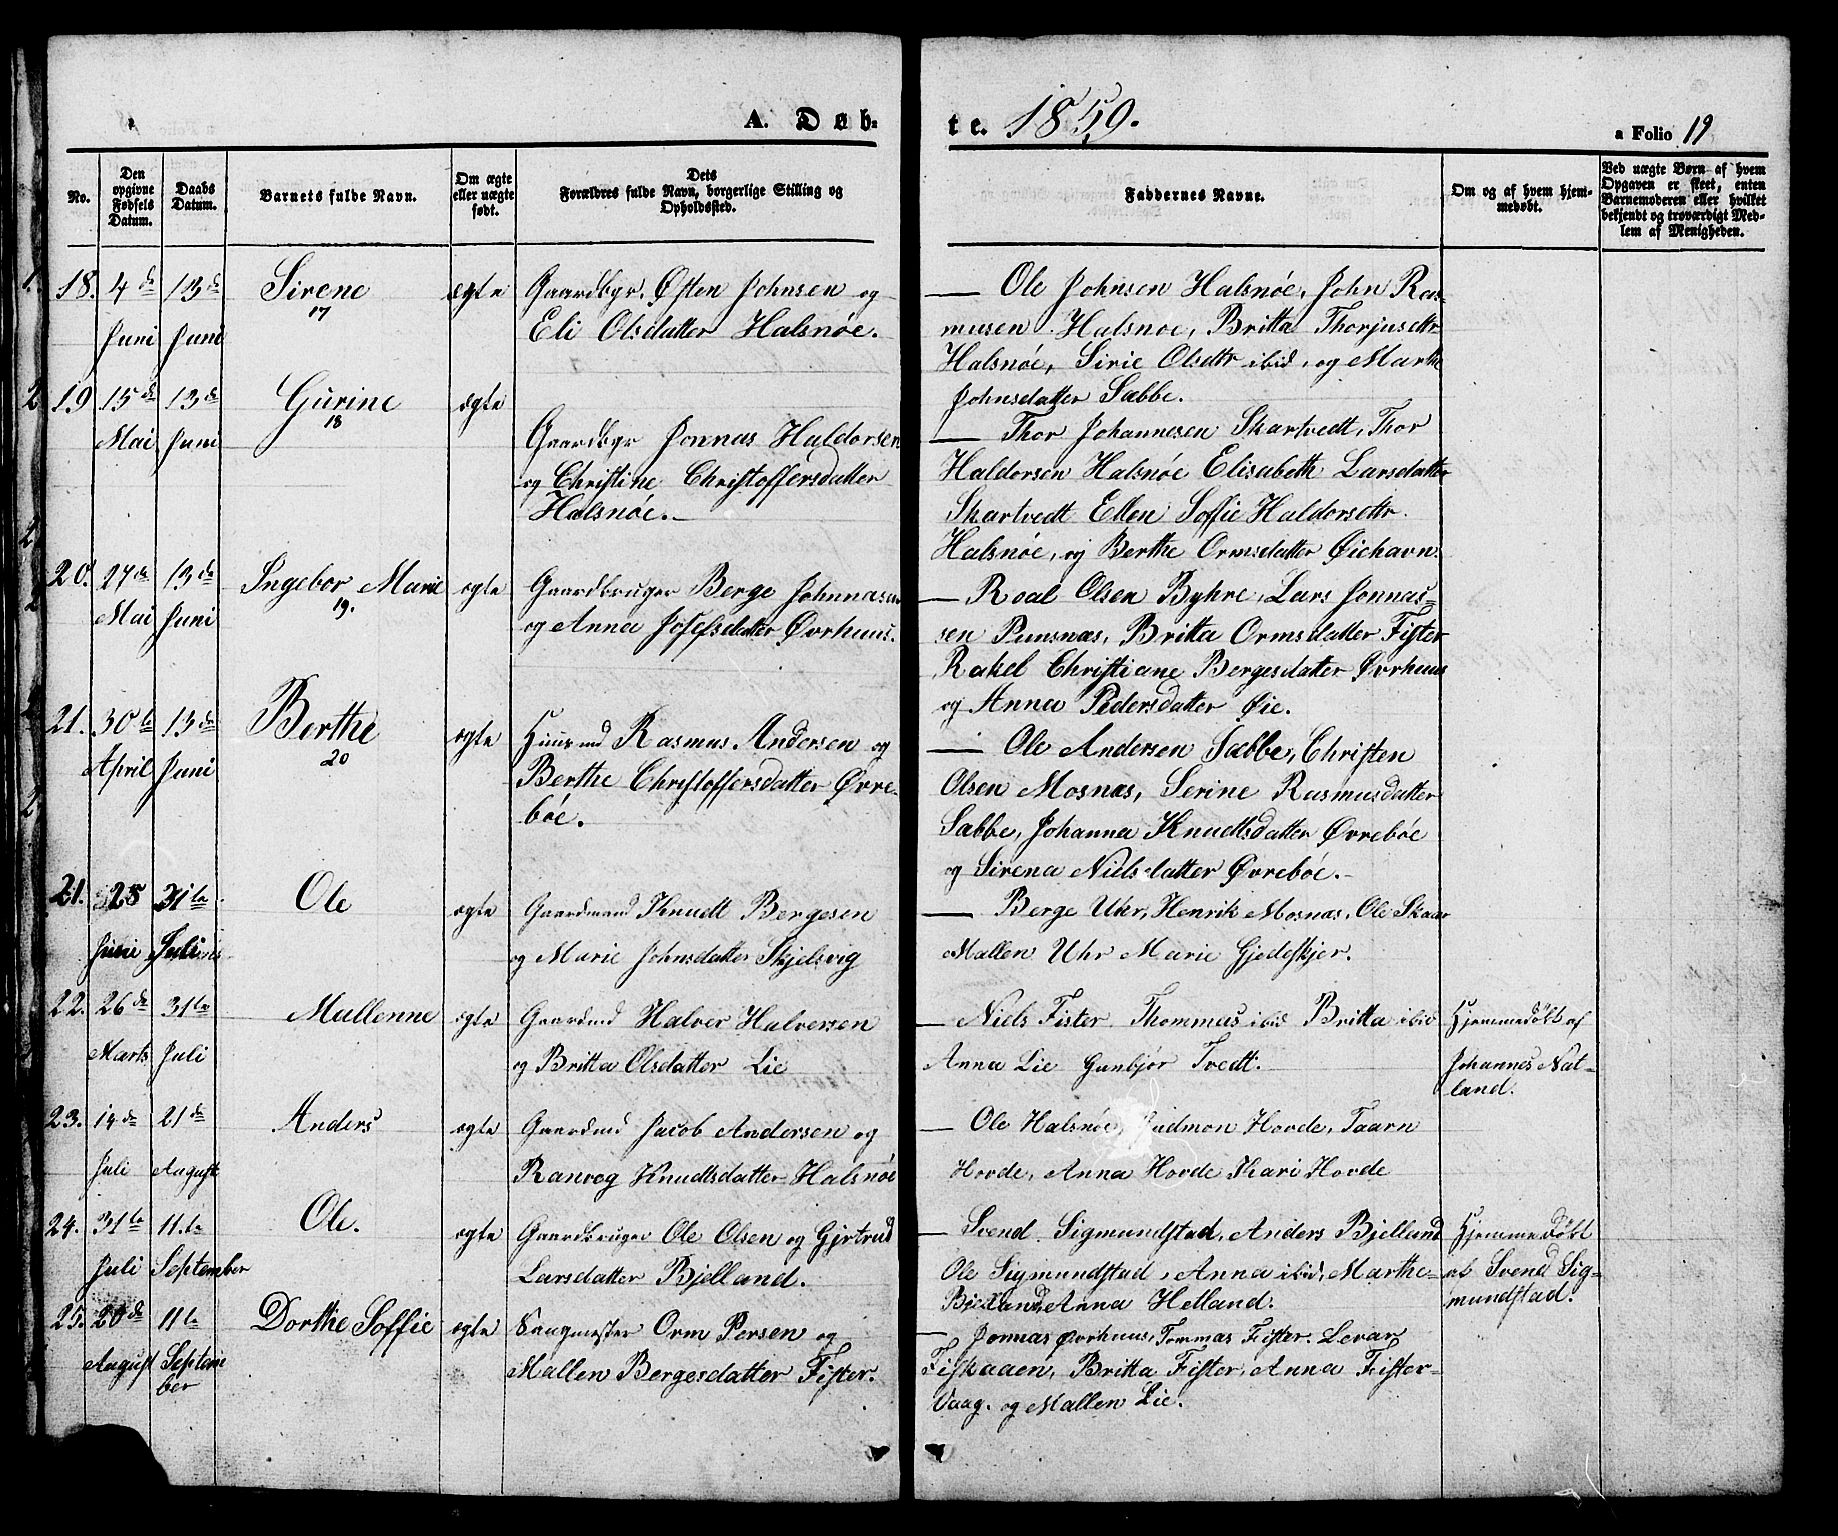 A. Døb-
te. 1859.
a Folio 19
No.
Den opgivne Fødsels Datum.
Daabs Datum.
Barnets fulde Navn.
Om ægte eller uægte født.
Dets Forældres fulde Navn, borgerlige Stilling og Opholdssted.
Faddernes Navne.
Om og af hvem hjemmedøbt.
Ved uægte Børn af hvem Opgaven er skeet, enten Barnemoderen eller hvilket bekjendt og troværdigt Medlem af Menigheden.
18. 4de Juni 13de Juni
Sirene
17
ægte
Gaardbgr. Østen Johnsen og
Eli Olsdatter Halsnøe.
— Ole Johnsen Halsnøe, John Ras-
musen Halsnoe, Britta Thorjusdtr
Halsnøe, Sirie Olsdtr ibid, og Marthe
Johnsdatter Sæbbe.
19 15de Mai 13de Juni
Gurine
18
ægte
Gaardbgr Jonnas Haldorsen
og Christine Christoffersdatter
Halsnøe.
— Thor Johannesen Skartvedt, Thor
Haldorsen Halsnøe Elisabeth Larsdatter
Skartvedt Ellen Soffie Haldorsdtr.
Halsnøe, og Berthe Ormsdatter Øiehavn
20. 27de Mai 13de Juni
Ingebor Marie
19.
ægte
Gaardbruger Berge Johnnasen
og Anna Josefsdatter Øvrhuus.
— Roal Olsen Byhre, Lars Jonnas-
sen Punsnæs, Britta Ormsdatter Fister
Rakel Christiane Bergesdatter Øvrhuus
og Anna Pedersdatter Øie.
21. 30te April 13de Juni
Berthe
20
ægte
Huusmd Rasmus Andersen og
Berthe Christoffersdatter Øvre-
bøe.
— Ole Andersen Sæbbe, Christen
Olsen Mosnæs, Serine Rasmusdatter
Sabbe, Johanna Knudtsdatter Øvrebøe
og Sirena Nielsdatter Øvrebøe.
21. 25 Juni 31te Juli
Ole
ægte
Gaardmand Knudt Bergesen
og Marie Johnsdatter Skjelsvig
— Berge Uhr, Henrik Mosnæs, Ole Skaar
Mallen Uhr Marie Gjedeskjer.
22. 26de Marts 31te Juli
Mallenne
ægte
Gaardmd Halver Halversen
og Britta Olsdatter Lie
— Niels Fister Thommas ibid Britta ibid
Anna Lie Gunbjør Tvedt.
Hjemmedøbt af
Johannes Nat-
land.
23. 14de Juli 21de August
Anders
ægte
Gaardmd Jacob Andersen og
Ranveg Knudtsdatter Halsnøe
— Ole Halsnøe, Gudmon Hovde, Taarn
Hovde, Anna Hovde Kari Hovde
24. 31te Juli 11te September
Ole.
ægte
Gaardbruger Ole Olsen og Gjertrud
Larsdatter Bjelland.
— Svend Sigmundstad, Anders Bjelland
Ole Sigmundstad, Anna ibid, Marthe
Bjelland, Anna Helland.
Hjemmedøbt
af Svend Sig-
mundstad.
25. 20de August 11te Septem
ber
Dorthe Soffie
ægte
Sangmester Orm Persen og
Mallen Bergesdatter Fister.
— Jonnas Øvrhuus, Tommas Fister. Levar
Fiskaaen, Britta Fister, Anna Fister-
Vaag. og Mallen Lie.